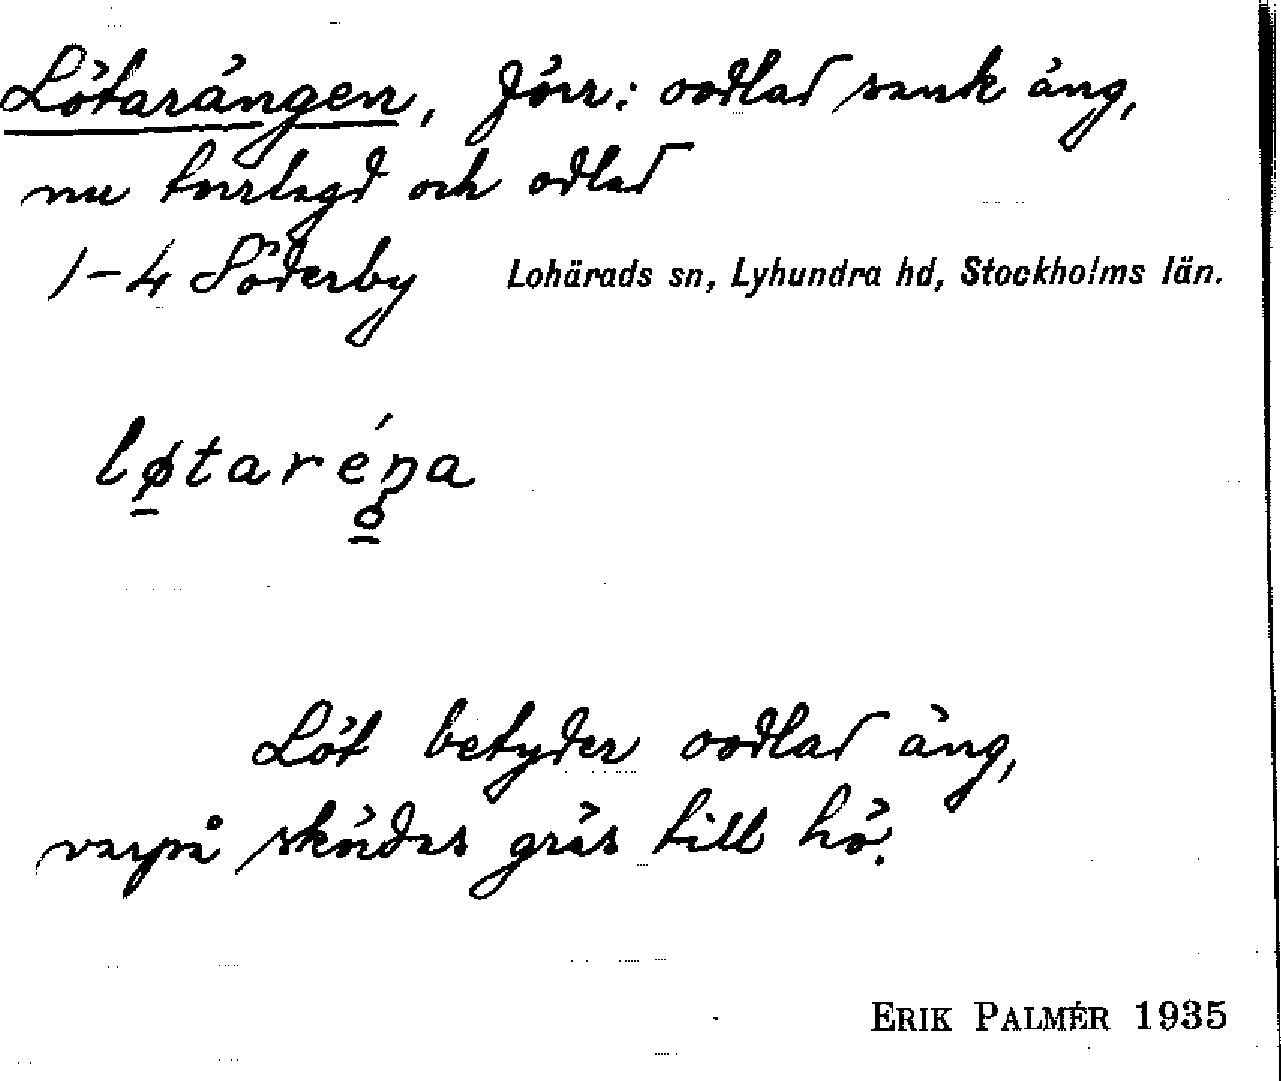 Lötarängen, förr: oodlad sank äng,
nu torrlagd och odlad
1-4 Söderby Lohärads sn, Lyhundra hd, Stockholms län.
løtaréŋa
Löt betyder oodlad äng,
varpå skördas gräs till hö.
ERIK PALMÉR 1935